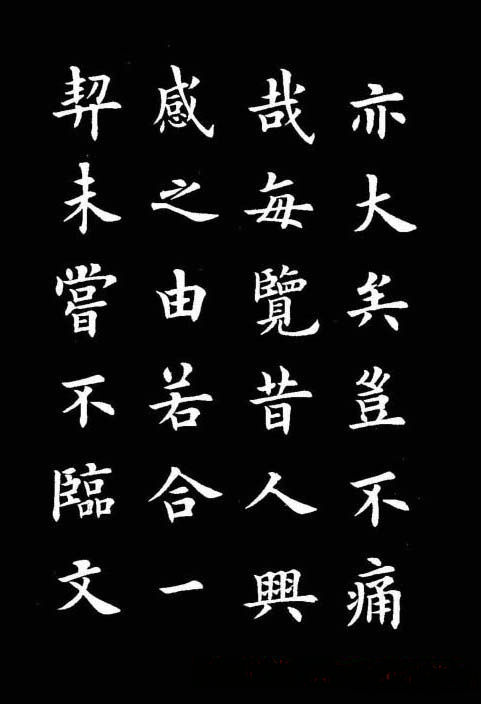 亦大矣豈不痛
哉每覽昔人興
感之由若合一
契未嘗不臨文